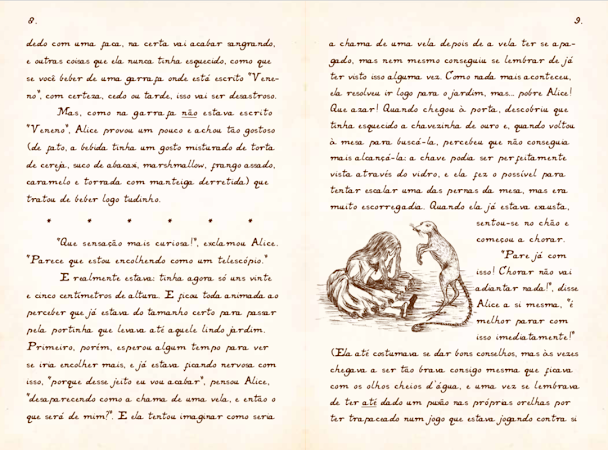 8.
dedo com uma faca, na certa vai acabar sangrando,
e outras coisas que ela nunca tinha esquecido, como que
se você beber de uma garrafa onde está escrito "Vene-
no", com certeza, cedo ou tarde, isso vai ser desastroso.
Mas, como na garrafa não estava escrito
"Veneno", Alice provou um pouco e achou tão gostoso
(de fato, a bebida tinha um gosto misturado de torta
de cereja, suco de abacaxi, marshmallow, frango assado,
caramelo e torrada com manteiga derretida) que
tratou de beber logo tudinho.
* * * * * *
"Que sensação mais curiosa!", exclamou Alice.
"Parece que estou encolhendo como um telescópio."
E realmente estava: tinha agora só uns vinte
e cinco centímetros de altura. E ficou toda animada ao
perceber que já estava do tamanho certo para passar
pela portinha que levava até aquele lindo jardim.
Primeiro, porém, esperou algum tempo para ver
se iria encolher mais, e já estava ficando nervosa com
isso, "porque desse jeito eu vou acabar", pensou Alice,
"desaparecendo como a chama de uma vela, e então o
que será de mim?". E ela tentou imaginar como seria
9.
a chama de uma vela depois de a vela ter se apa-
gado, mas nem mesmo conseguiu se lembrar de já
ter visto isso alguma vez. Como nada mais aconteceu,
ela resolveu ir logo para o jardim, mas... pobre Alice!
Que azar! Quando chegou à porta, descobriu que
tinha esquecido a chavezinha de ouro e, quando voltou
à mesa para buscá-la, percebeu que não conseguia
mais alcançá-la: a chave podia ser perfeitamente
vista através do vidro, e ela fez o possível para
tentar escalar uma das pernas da mesa, mas era
muito escorregadia. Quando ela já estava exausta,
sentou-se no chão e
começou a chorar.
"Pare já com
isso! Chorar não vai
adiantar nada!", disse
Alice a si mesma, "é
melhor parar com
isso imediatamente!"
(Ela até costumava se dar bons conselhos, mas às vezes
chegava a ser tão brava consigo mesma que ficava
com os olhos cheios d'água, e uma vez se lembrava
de ter até dado um puxão nas próprias orelhas por
ter trapaceado num jogo que estava jogando contra si